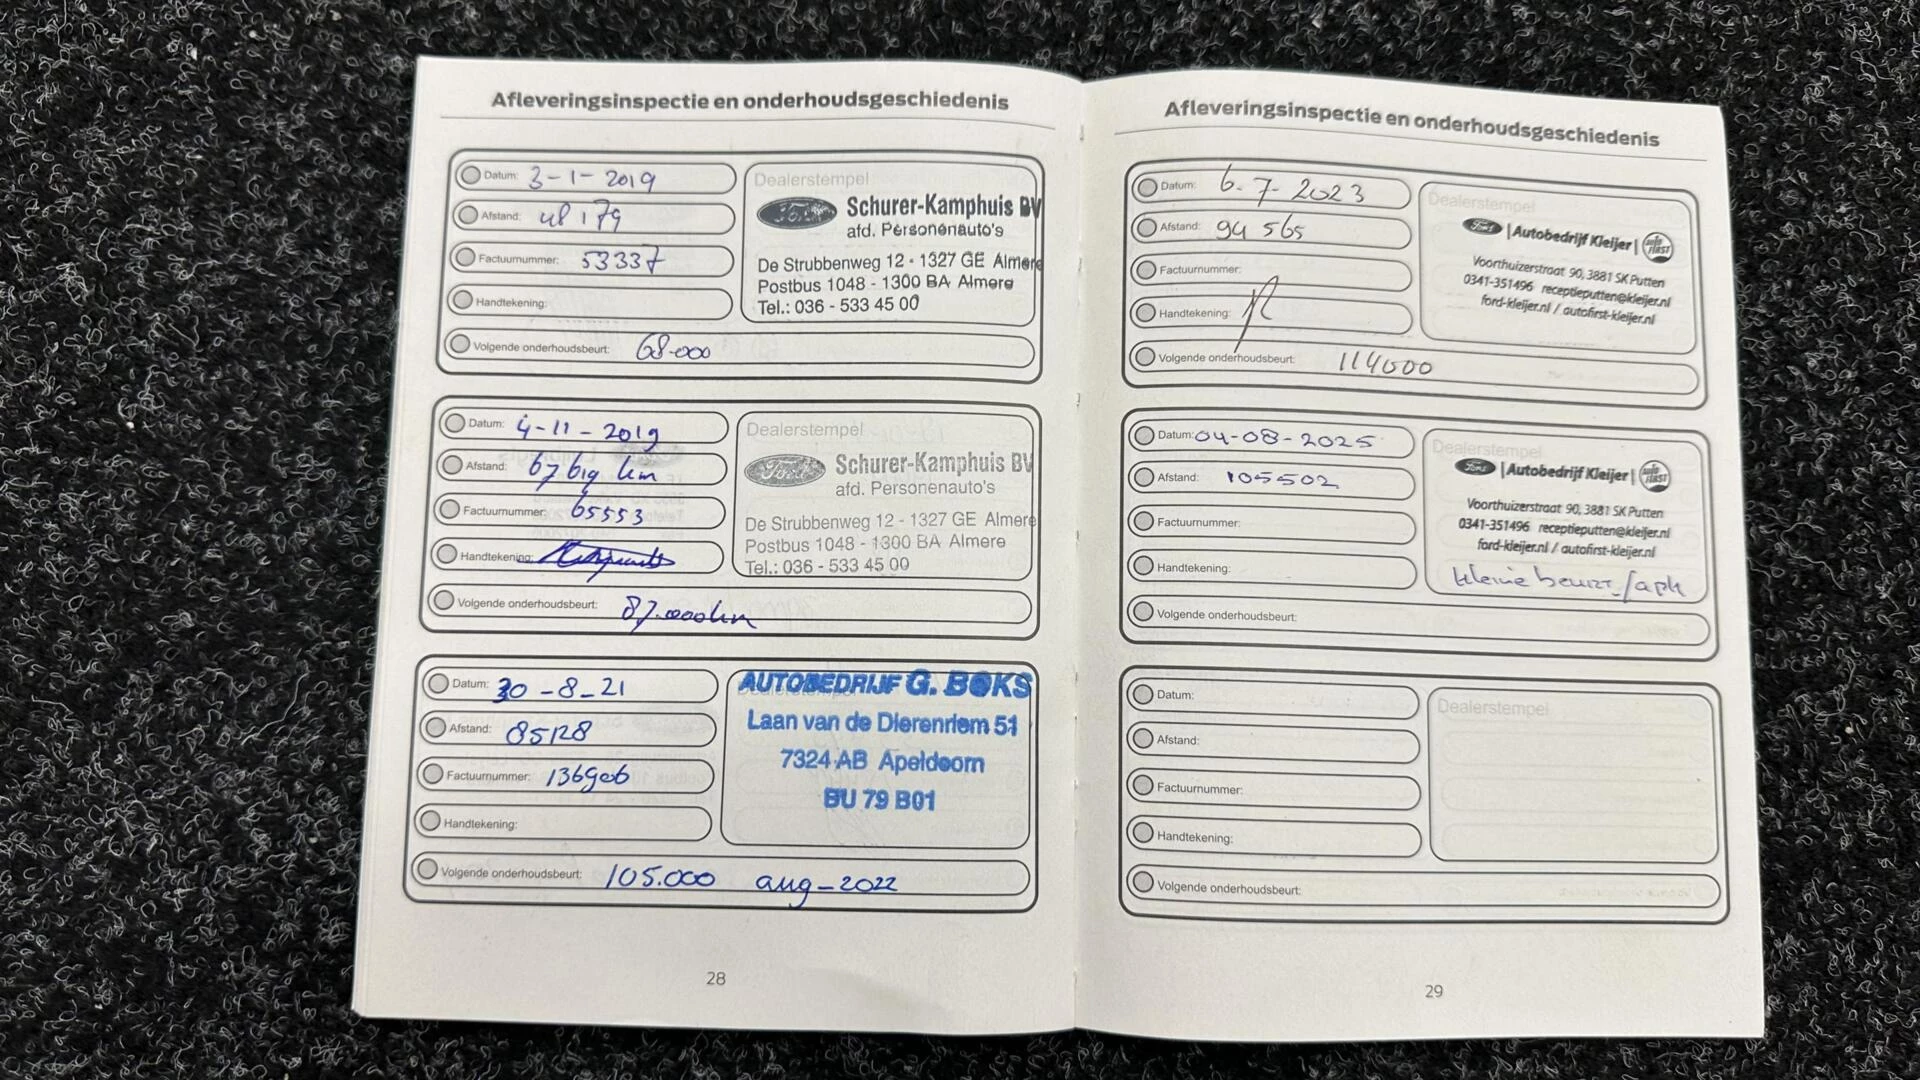 Afleveringsinspectie en onderhoudsgeschiedenis
Datum: 3-1-2019
Afstand: 48179
Factuurnummer: 53337
Handtekening:
Volgende onderhoudsbeurt: 68.000
Dealerstempel
Ford Schurer-Kamphuis BV
afd. Personenauto's
De Strubbenweg 12 - 1327 GE Almere
Postbus 1048 - 1300 BA Almere
Tel.: 036 - 533 45 00
Datum: 4-11-2019
Afstand: 67619 km
Factuurnummer: 65553
Handtekening:
Volgende onderhoudsbeurt: 87.000km
Dealerstempel
Ford Schurer-Kamphuis BV
afd. Personenauto's
De Strubbenweg 12 - 1327 GE Almere
Postbus 1048 - 1300 BA Almere
Tel.: 036 - 533 45 00
Datum: 30-8-21
Afstand: 85128
Factuurnummer: 136906
Handtekening:
Volgende onderhoudsbeurt: 105.000 aug-2022
AUTOBEDRIJF G. BOKS
Laan van de Dierenriem 51
7324 AB Apeldoorn
BU 79 B01
28
Afleveringsinspectie en onderhoudsgeschiedenis
Datum: 6-7-2023
Afstand: 94565
Factuurnummer:
Handtekening:
Volgende onderhoudsbeurt: 114000
Dealerstempel
Ford | Autobedrijf Kleijer | auto FIRST
Voorthuizerstraat 90, 3881 SK Putten
0341-351496 receptieputten@kleijer.nl
ford-kleijer.nl / autofirst-kleijer.nl
Datum: 04-08-2025
Afstand: 105502
Factuurnummer:
Handtekening:
Volgende onderhoudsbeurt:
Dealerstempel
Ford | Autobedrijf Kleijer | auto FIRST
Voorthuizerstraat 90, 3881 SK Putten
0341-351496 receptieputten@kleijer.nl
ford-kleijer.nl / autofirst-kleijer.nl
kleine beurt/apk
Datum:
Afstand:
Factuurnummer:
Handtekening:
Volgende onderhoudsbeurt:
Dealerstempel
29